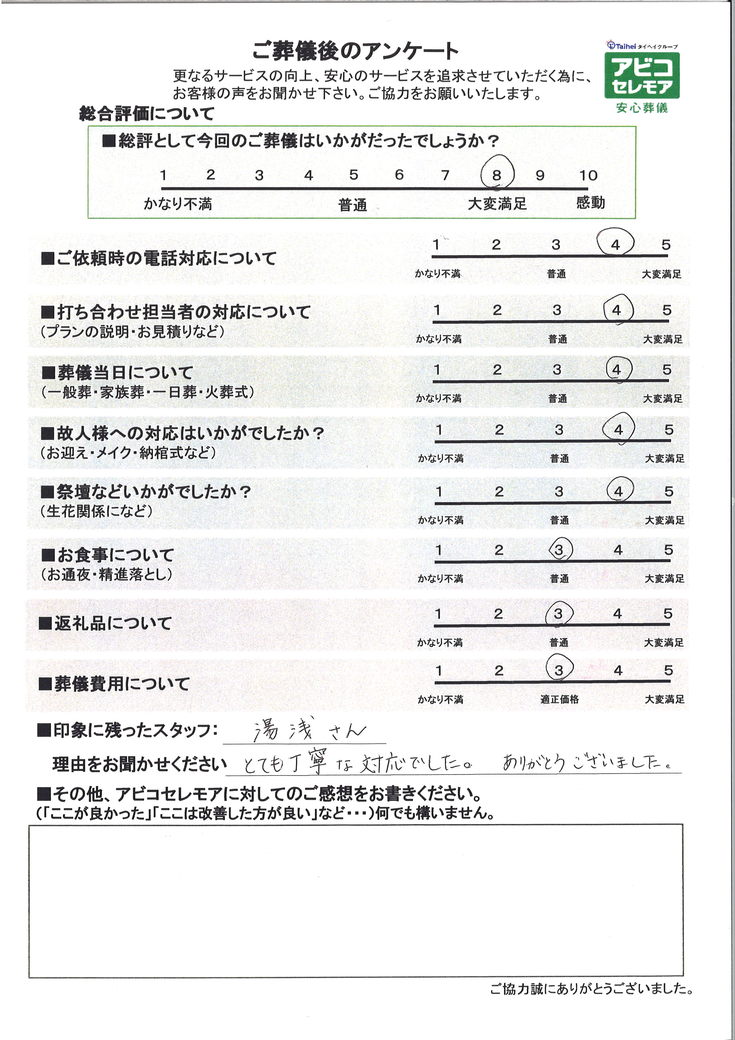 ご葬儀後のアンケート
Taihei タイヘイグループ
アビコ
セレモア
安心葬儀
更なるサービスの向上、安心のサービスを追求させていただく為に、
お客様の声をお聞かせ下さい。ご協力をお願いいたします。
総合評価について
■総評として今回のご葬儀はいかがだったでしょうか?
1 2 3 4 5 6 7 8 9 10
かなり不満 普通 大変満足 感動
■ご依頼時の電話対応について
1 2 3 4 5
かなり不満 普通 大変満足
■打ち合わせ担当者の対応について
(プランの説明・お見積りなど)
1 2 3 4 5
かなり不満 普通 大変満足
■葬儀当日について
(一般葬・家族葬・一日葬・火葬式)
1 2 3 4 5
かなり不満 普通 大変満足
■故人様への対応はいかがでしたか?
(お迎え・メイク・納棺式など)
1 2 3 4 5
かなり不満 普通 大変満足
■祭壇などいかがでしたか?
(生花関係になど)
1 2 3 4 5
かなり不満 普通 大変満足
■お食事について
(お通夜・精進落とし)
1 2 3 4 5
かなり不満 普通 大変満足
■返礼品について
1 2 3 4 5
かなり不満 普通 大変満足
■葬儀費用について
1 2 3 4 5
かなり不満 適正価格 大変満足
■印象に残ったスタッフ: 湯浅さん
理由をお聞かせください とても丁寧な対応でした。 ありがとうございました。
■その他、アビコセレモアに対してのご感想をお書きください。
(「ここが良かった」「ここは改善した方が良い」など・・・)何でも構いません。
ご協力誠にありがとうございました。